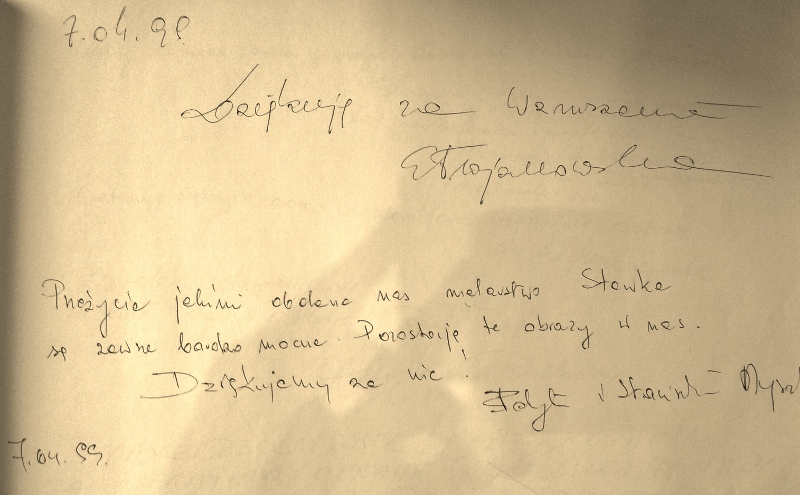 7.04.99.
Dziękuję za Wzruszenie
ETrojanowska
Przeżycia jakimi obdana nas malarstwo Stawka
są zawsze bardzo mocne. Pozostają te obrazy w nas.
Dziękujemy za nie!
i
7.04.99.